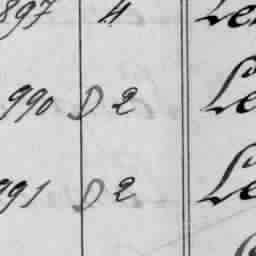 897 4 Le
990 D 2 Le
991 D 2 Le